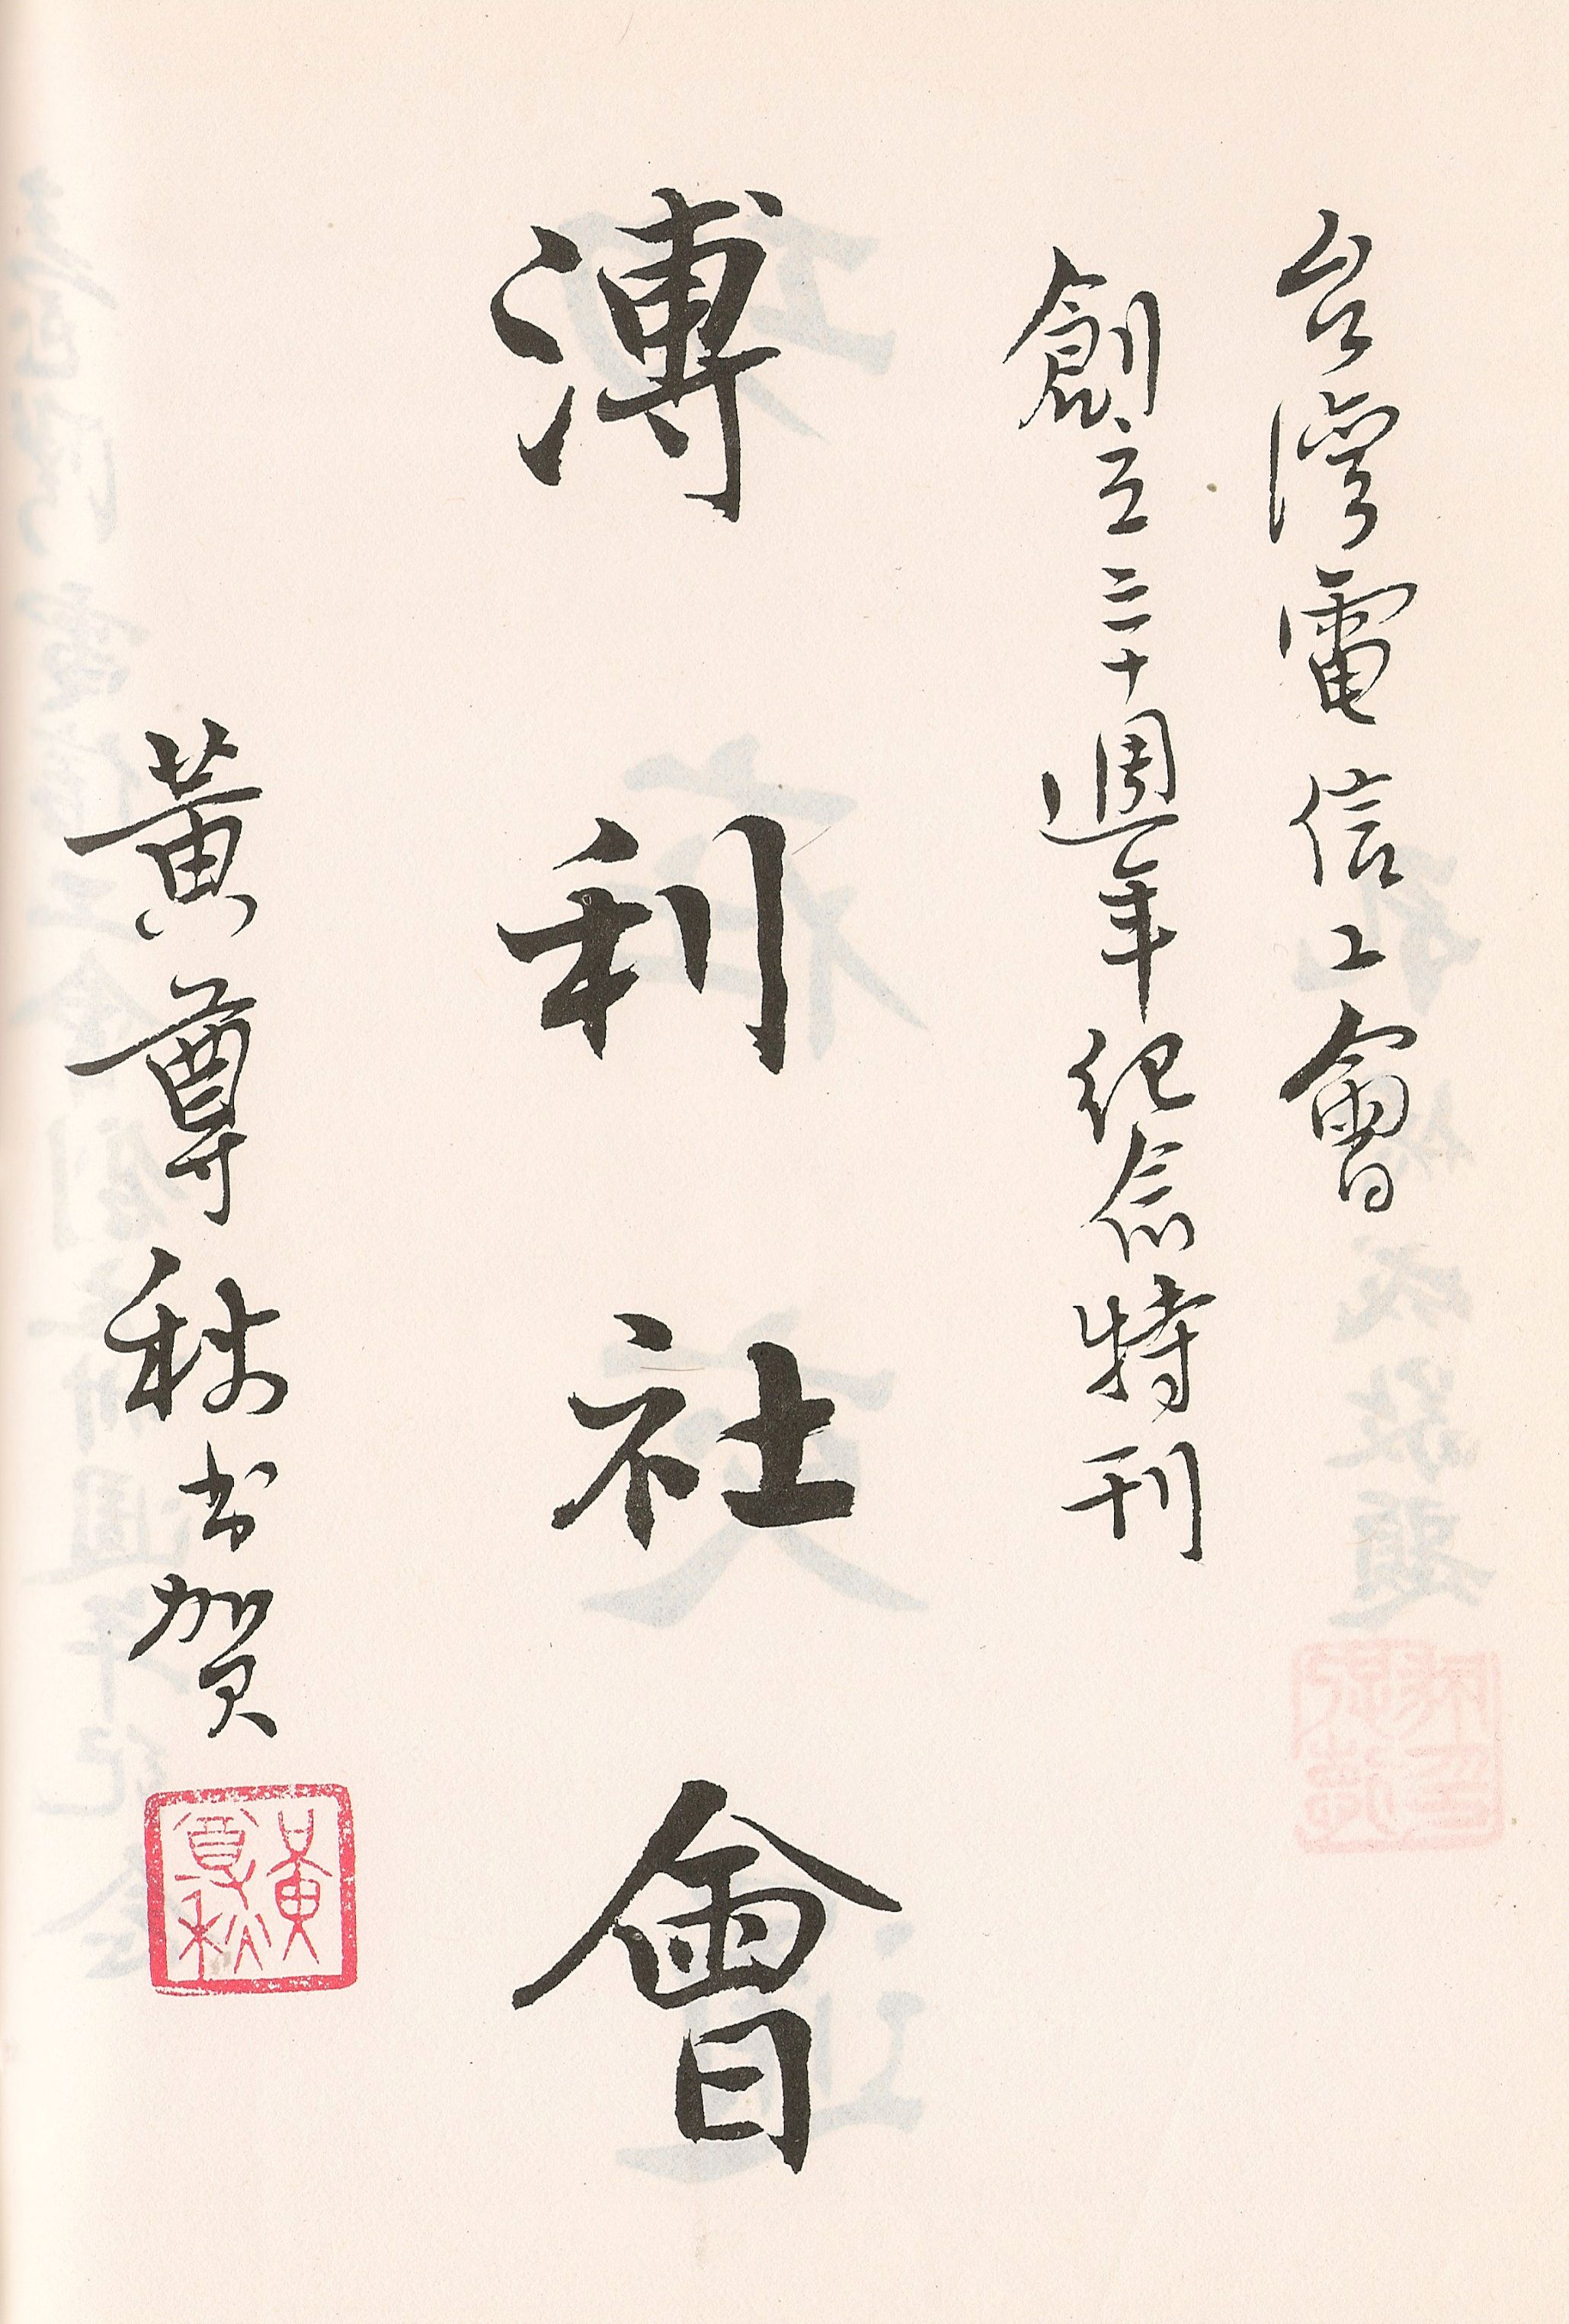 台灣電信工會
創立三十週年紀念特刊
溥利社會
黃尊秋書賀
黃尊秋